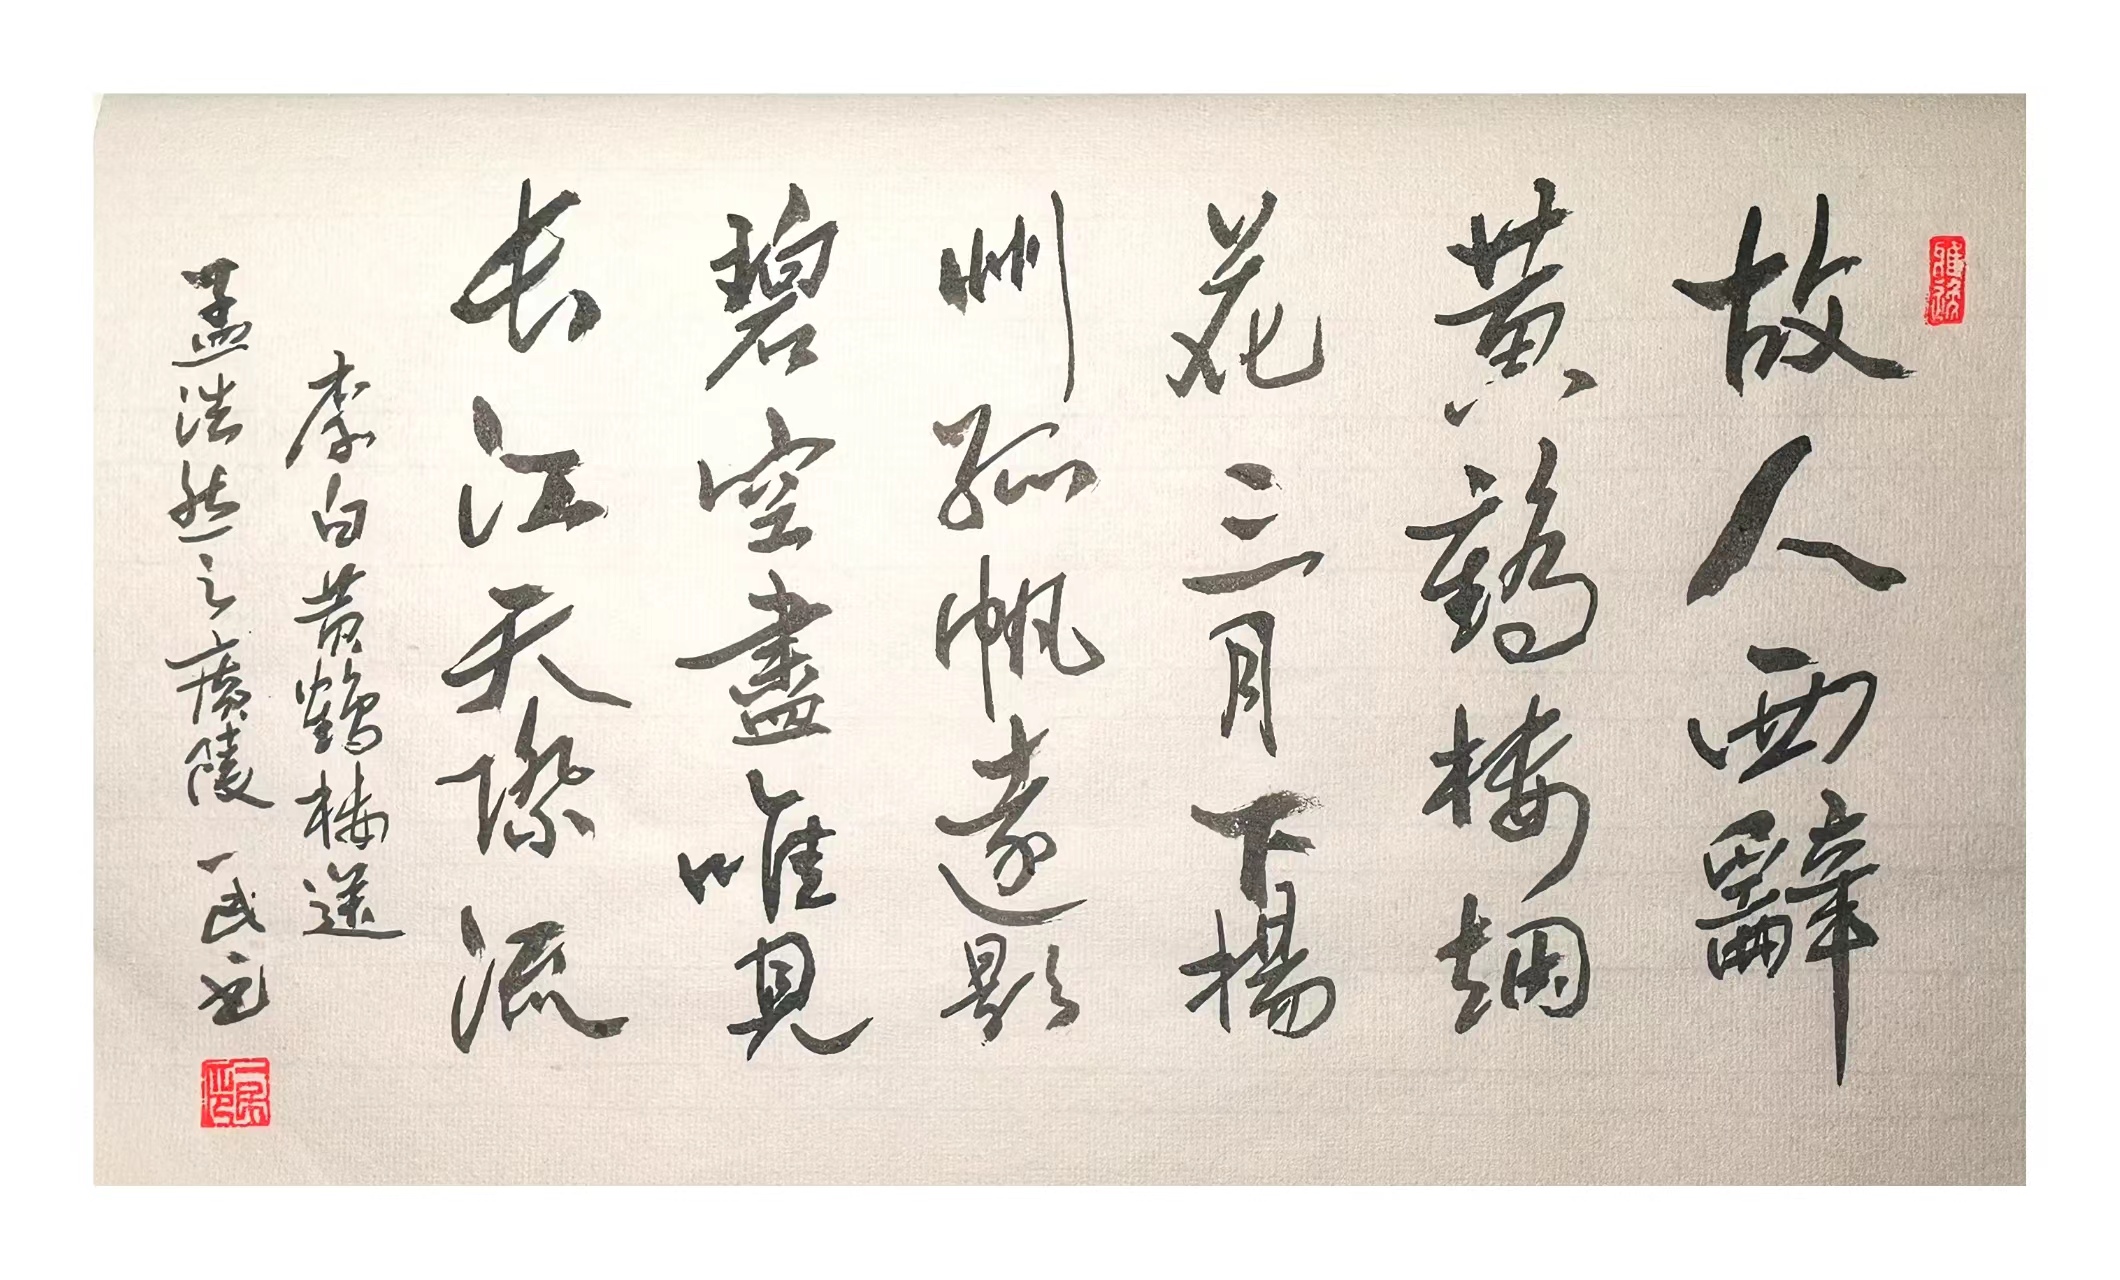 故人西辭
黄鶴楼烟
花三月下揚
州孤帆遠影
碧空盡唯見
长江天際流
李白黄鶴楼送
孟浩然之廣陵 一民书